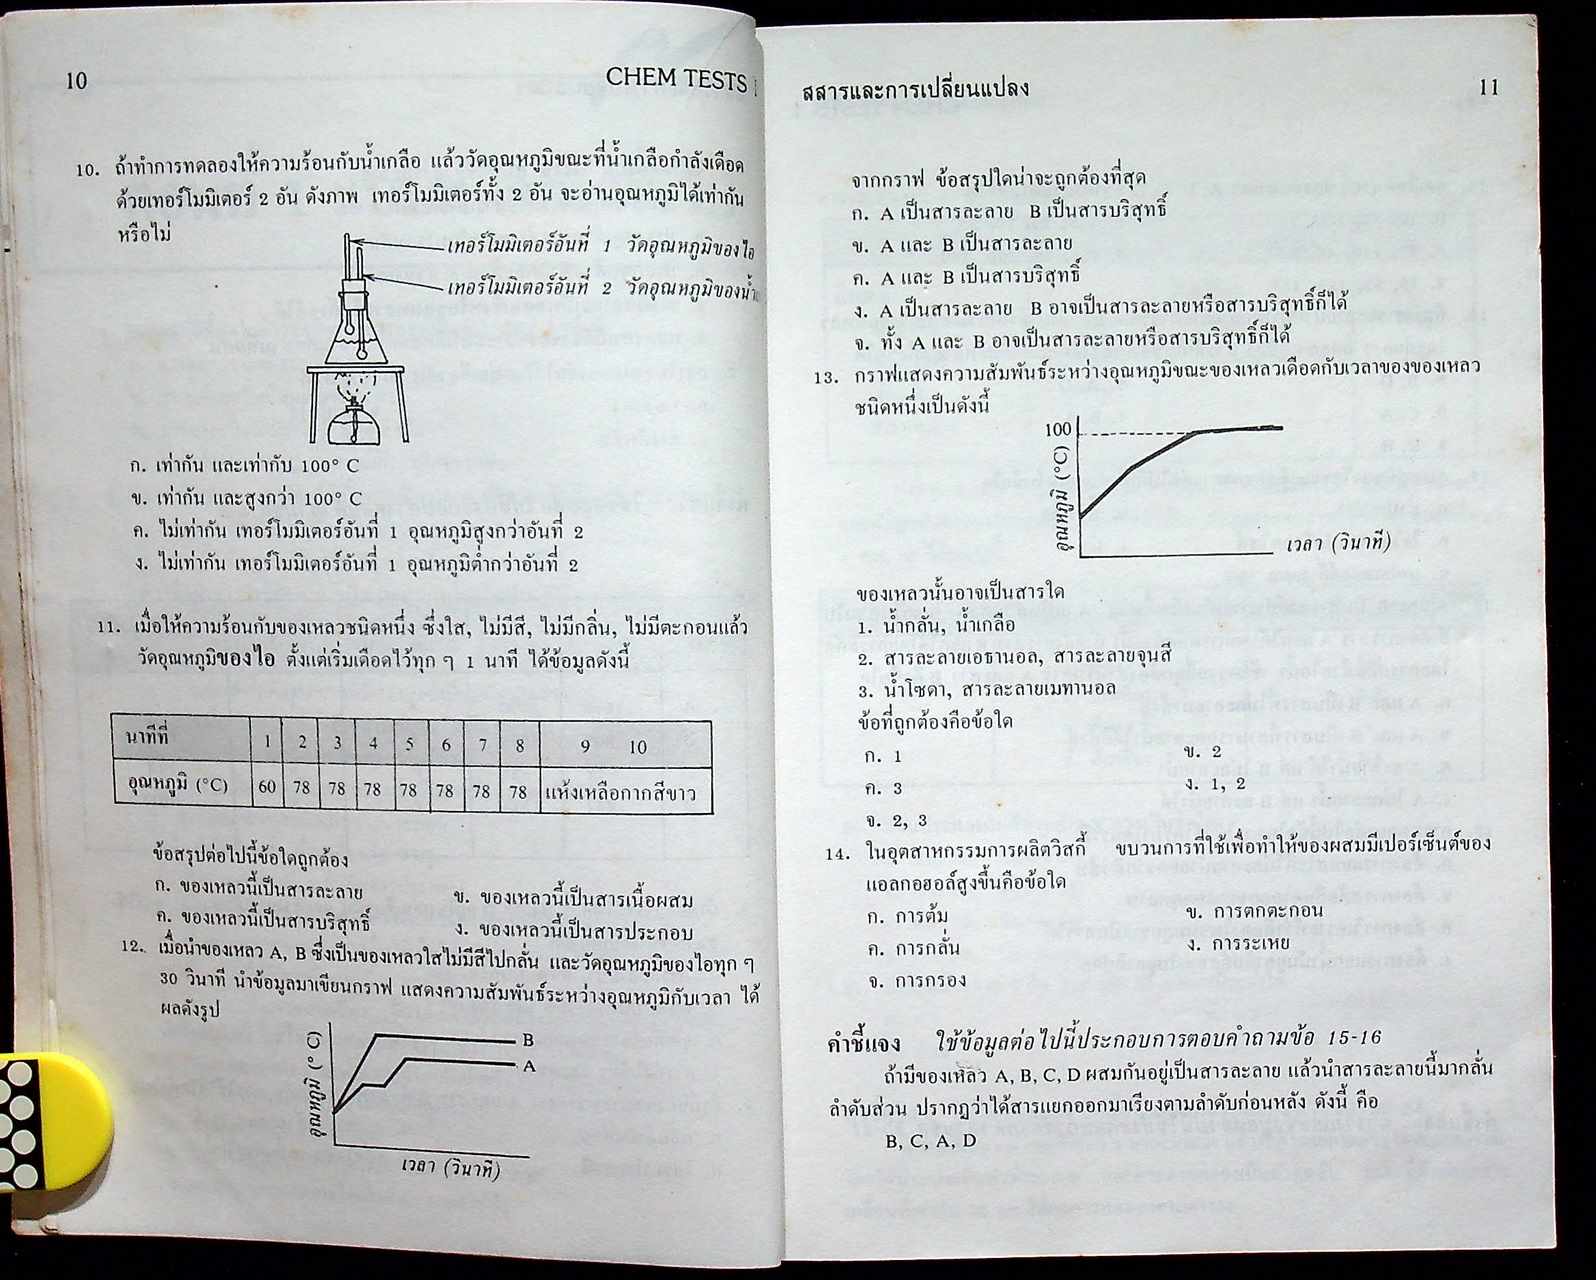 10
CHEM TESTS I
10. ถ้าทำการทดลองให้ความร้อนกับน้ำเกลือ แล้ววัดอุณหภูมิขณะที่น้ำเกลือกำลังเดือด
ด้วยเทอร์โมมิเตอร์ 2 อัน ดังภาพ เทอร์โมมิเตอร์ทั้ง 2 อัน จะอ่านอุณหภูมิได้เท่ากัน
หรือไม่
เทอร์โมมิเตอร์อันที่ 1 วัดอุณหภูมิของไอ
เทอร์โมมิเตอร์อันที่ 2 วัดอุณหภูมิของน้ำ
ก. เท่ากัน และเท่ากับ 100° C
ข. เท่ากัน และสูงกว่า 100° C
ค. ไม่เท่ากัน เทอร์โมมิเตอร์อันที่ 1 อุณหภูมิสูงกว่าอันที่ 2
ง. ไม่เท่ากัน เทอร์โมมิเตอร์อันที่ 1 อุณหภูมิต่ำกว่าอันที่ 2
11. เมื่อให้ความร้อนกับของเหลวชนิดหนึ่ง ซึ่งใส, ไม่มีสี, ไม่มีกลิ่น, ไม่มีตะกอนแล้ว
วัดอุณหภูมิของไอ ตั้งแต่เริ่มเดือดไว้ทุก ๆ 1 นาที ได้ข้อมูลดังนี้
นาทีที่ 1 2 3 4 5 6 7 8 9 10
อุณหภูมิ (°C) 60 78 78 78 78 78 78 78 แห้งเหลือกากสีขาว
ข้อสรุปต่อไปนี้ข้อใดถูกต้อง
ก. ของเหลวนี้เป็นสารละลาย ข. ของเหลวนี้เป็นสารเนื้อผสม
ค. ของเหลวนี้เป็นสารบริสุทธิ์ ง. ของเหลวนี้เป็นสารประกอบ
12. เมื่อนำของเหลว A, B ซึ่งเป็นของเหลวใสไม่มีสีไปกลั่น และวัดอุณหภูมิของไอทุก ๆ
30 วินาที นำข้อมูลมาเขียนกราฟ แสดงความสัมพันธ์ระหว่างอุณหภูมิกับเวลา ได้
ผลดังรูป
อุณหภูมิ (°C)
B
A
เวลา (วินาที)
สสารและการเปลี่ยนแปลง
11
จากกราฟ ข้อสรุปใดน่าจะถูกต้องที่สุด
ก. A เป็นสารละลาย B เป็นสารบริสุทธิ์
ข. A และ B เป็นสารละลาย
ค. A และ B เป็นสารบริสุทธิ์
ง. A เป็นสารละลาย B อาจเป็นสารละลายหรือสารบริสุทธิ์ก็ได้
จ. ทั้ง A และ B อาจเป็นสารละลายหรือสารบริสุทธิ์ก็ได้
13. กราฟแสดงความสัมพันธ์ระหว่างอุณหภูมิขณะของเหลวเดือดกับเวลาของของเหลว
ชนิดหนึ่งเป็นดังนี้
100
อุณหภูมิ (°C)
เวลา (วินาที)
ของเหลวนั้นอาจเป็นสารใด
1. น้ำกลั่น, น้ำเกลือ
2. สารละลายเอธานอล, สารละลายจุนสี
3. น้ำโซดา, สารละลายเมทานอล
ข้อที่ถูกต้องคือข้อใด
ก. 1 ข. 2
ค. 3 ง. 1, 2
จ. 2, 3
14. ในอุตสาหกรรมการผลิตวิสกี้ ขบวนการที่ใช้เพื่อทำให้ของผสมมีเปอร์เซ็นต์ของ
แอลกอฮอล์สูงขึ้นคือข้อใด
ก. การต้ม ข. การตกตะกอน
ค. การกลั่น ง. การระเหย
จ. การกรอง
คำชี้แจง ใช้ข้อมูลต่อไปนี้ประกอบการตอบคำถามข้อ 15-16
ถ้ามีของเหลว A, B, C, D ผสมกันอยู่เป็นสารละลาย แล้วนำสารละลายนี้มากลั่น
ลำดับส่วน ปรากฏว่าได้สารแยกออกมาเรียงตามลำดับก่อนหลัง ดังนี้ คือ
B, C, A, D